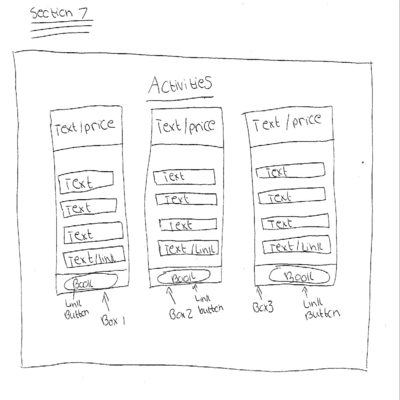 Section 7
Activities
Text/price
Text
Text
Text
Text/Link
Book
Link Button
Box 1
Text/price
Text
Text
Text
Text/Link
Book
Box2
Link button
Text/price
Text
Text
Text
Text/Link
Book
Box3
Link Button